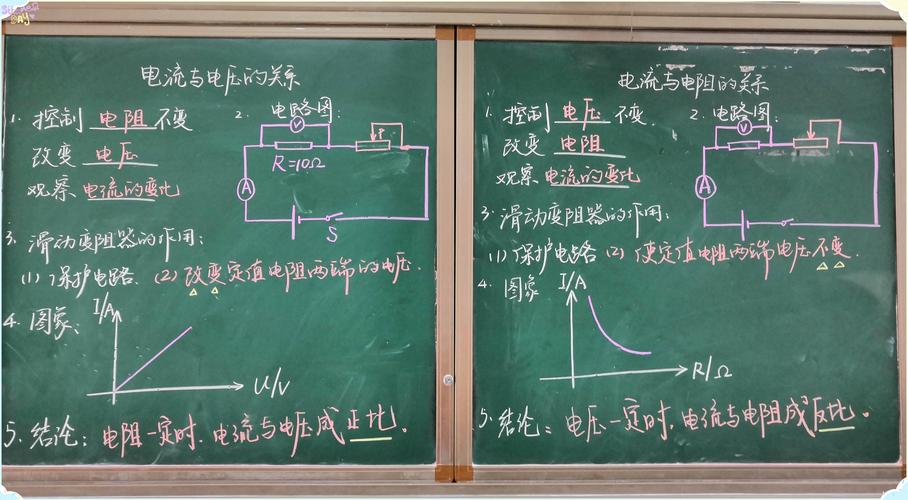 电流与电压的关系
1. 控制 电阻 不变
改变 电压
观察 电流的变化
2. 电路图:
V
R=10Ω
P
A
S
3. 滑动变阻器的作用:
(1) 保护电路. (2) 改变定值电阻两端的电压.
4. 图象:
I/A
U/V
5. 结论: 电阻一定时, 电流与电压成正比.
电流与电阻的关系
1. 控制 电压 不变.
改变 电阻
观察 电流的变化
2. 电路图:
V
A
3. 滑动变阻器的作用:
(1) 保护电路 (2) 使定值电阻两端电压不变.
4. 图象
I/A
R/Ω
5. 结论: 电压一定时, 电流与电阻成反比.